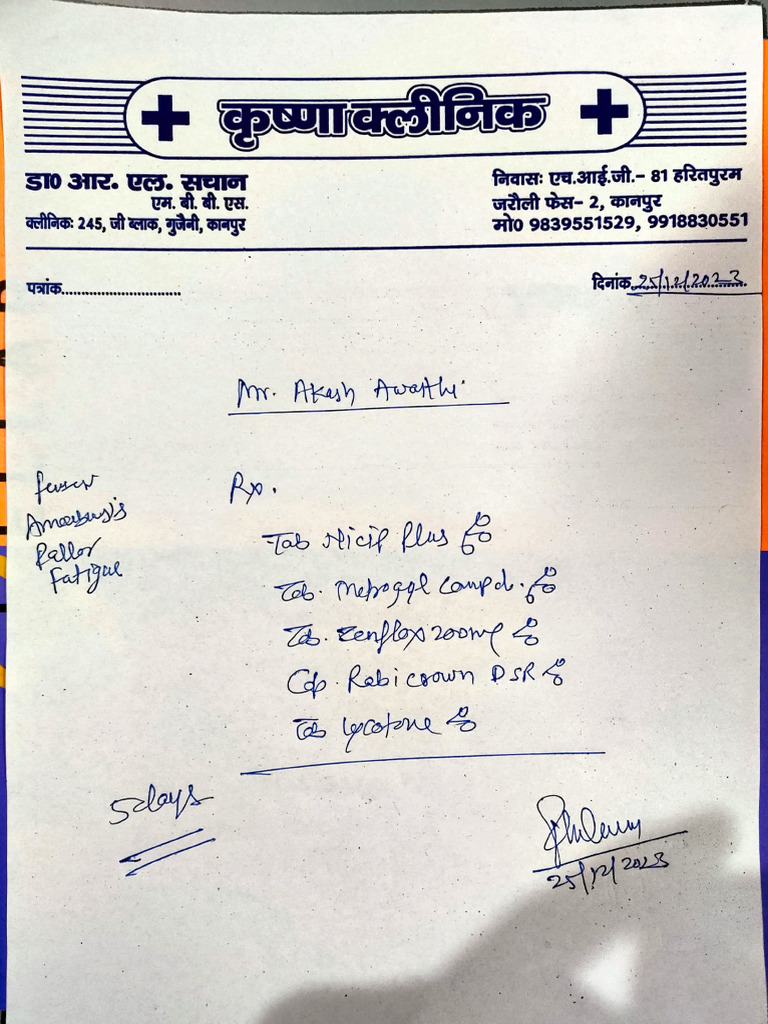 कृष्णा क्लीनिक
डा0 आर. एल. सचान
एम. बी. बी. एस.
क्लीनिक: 245, जी ब्लाक, गुजैनी, कानपुर
निवास: एच.आई.जी.- 81 हरितपुरम
जरौली फेस- 2, कानपुर
मो0 9839551529, 9918830551
पत्रांक
दिनांक 25/12/2023
Mr. Akash Awasthi
Pallor
Fatigue
Rx.
Tab Nicip Plus
Tab. Metrogyl Compd.
Tab. Zenflox 200mg
Cap. Rabicrown DSR
Tab Lycotone
5 days
25/12/2023